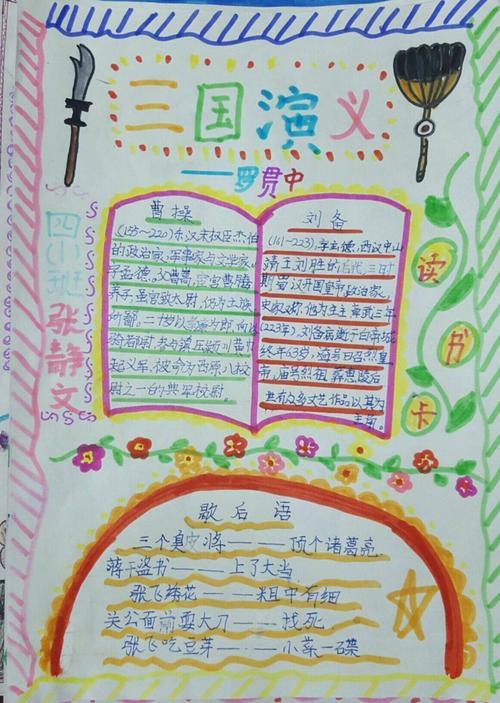 三国演义
——罗贯中
四(小)班
张静文
读书卡
曹操
(155-220)东汉末权臣杰伯
的政治家、军事家与文学家,
字孟德。父曹嵩,
养子,
二十岁
起义军,被命为西原八校
尉之一的典军校尉。
刘备
(161-223),字玄德,西汉中山
靖王刘胜的后代,三国时
期蜀汉开国皇帝,政治家,
史家又称他为主章武三年
(223年),刘备病逝于白帝城
终年63岁,谥号曰召烈皇
帝,庙号烈祖,葬惠陵后
世有众多文艺作品以其为
主角。
歇后语
三个臭皮将——顶个诸葛亮
蒋干盗书——上了大当
张飞绣花——粗中有细
关公面前耍大刀——找死
张飞吃豆芽——小菜一碟